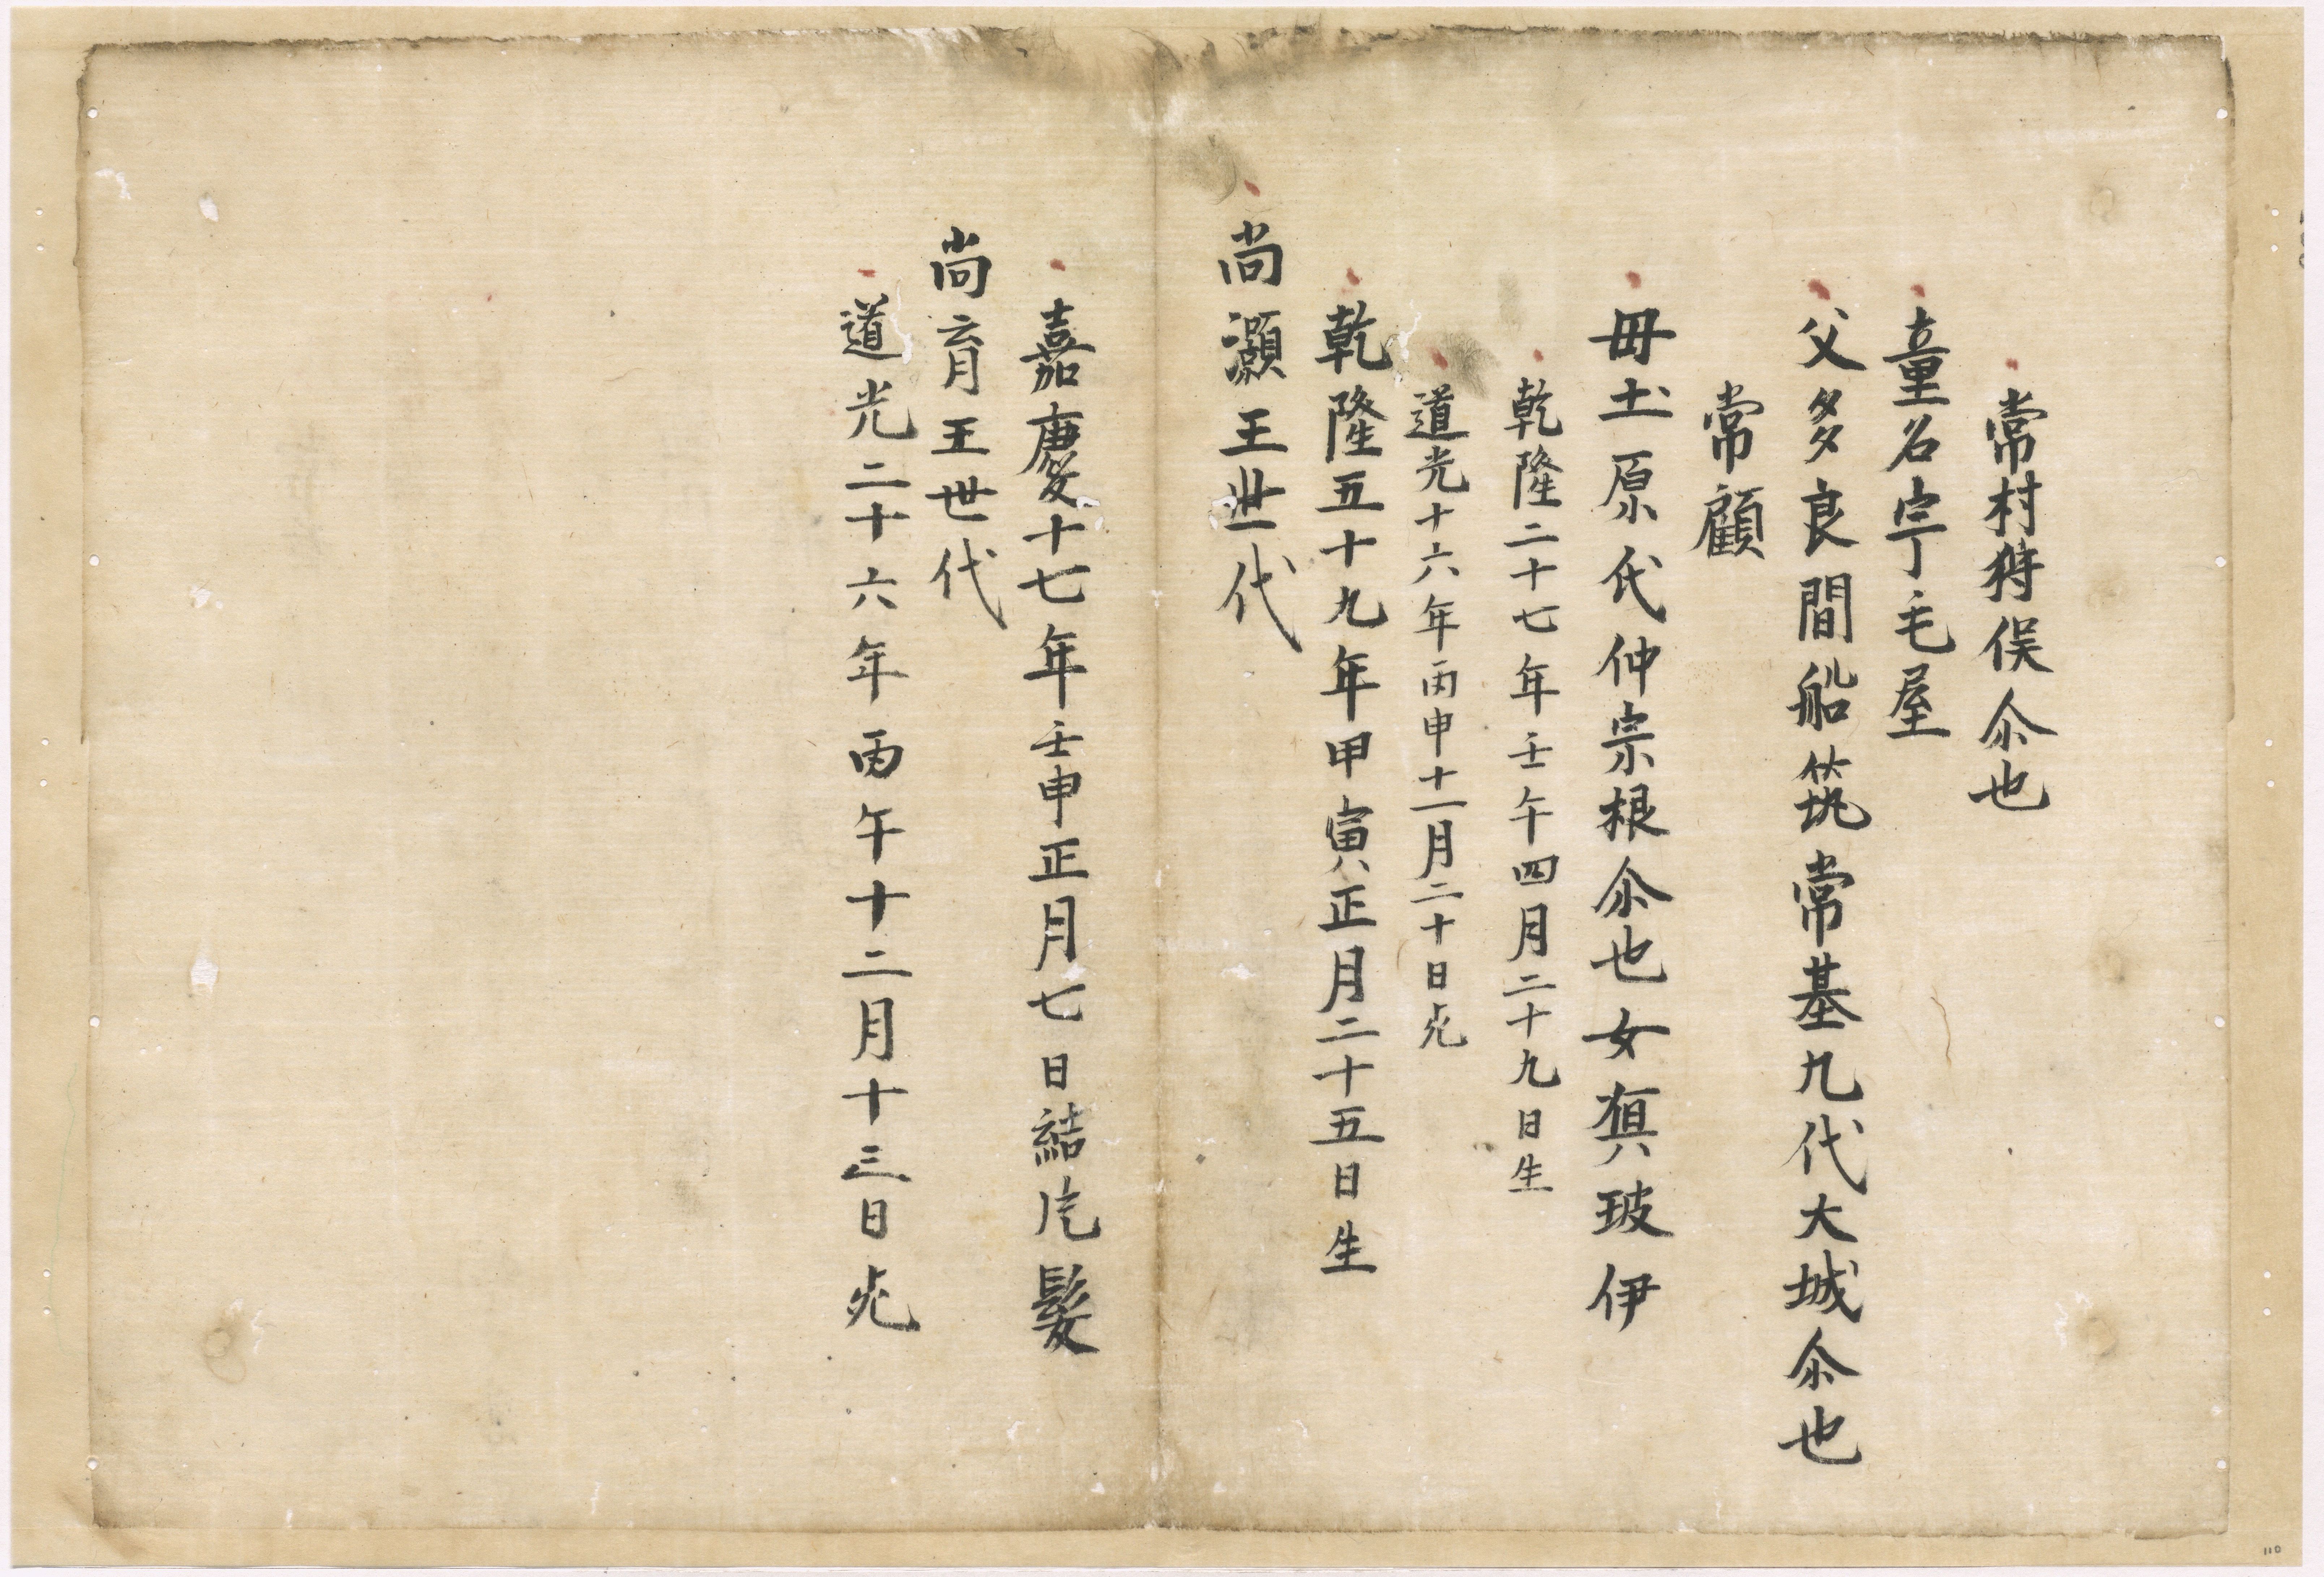 常村狩俣尒也
童名宇毛屋
父多良間船筑常基九代大城尒也
常顧
母土原氏仲宗根尒也女㒵玻伊
乾隆二十七年壬午四月二十九日生
道光十六年丙申十一月二十日死
乾隆五十九年甲寅正月二十五日生
尚灝王世代
嘉慶十七年壬申正月七日結片髪
尚育王世代
道光二十六年丙午十二月十三日死
110